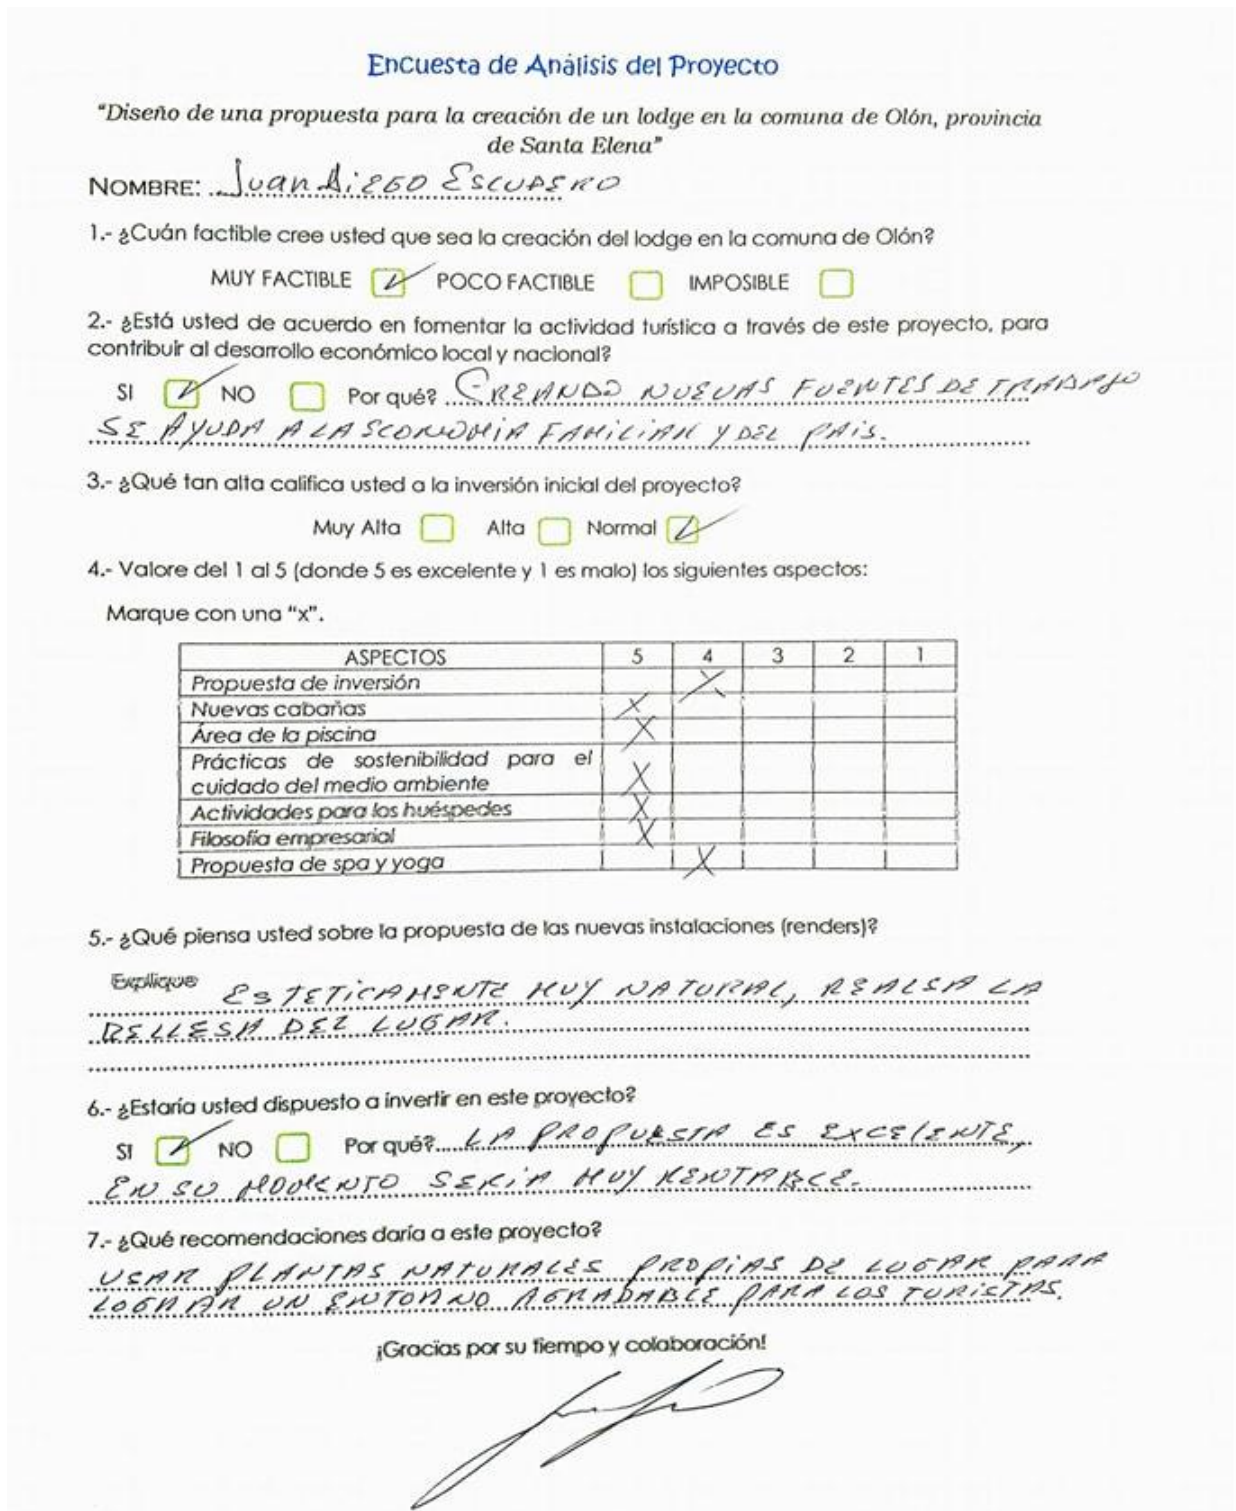 Encuesta de Análisis del Proyecto
"Diseño de una propuesta para la creación de un lodge en la comuna de Olón, provincia
de Santa Elena"
NOMBRE: Juan Diego Escudero
1.- ¿Cuán factible cree usted que sea la creación del lodge en la comuna de Olón?
MUY FACTIBLE POCO FACTIBLE IMPOSIBLE
2.- ¿Está usted de acuerdo en fomentar la actividad turística a través de este proyecto, para
contribuir al desarrollo económico local y nacional?
SI NO Por qué? CREANDO NUEVAS FUENTES DE TRABAJO
SE AYUDA A LA ECONOMIA FAMILIAR Y DEL PAIS.
3.- ¿Qué tan alta califica usted a la inversión inicial del proyecto?
Muy Alta Alta Normal
4.- Valore del 1 al 5 (donde 5 es excelente y 1 es malo) los siguientes aspectos:
Marque con una "x".
ASPECTOS 5 4 3 2 1
Propuesta de inversión X
Nuevas cabañas X
Área de la piscina X
Prácticas de sostenibilidad para el
cuidado del medio ambiente X
Actividades para los huéspedes X
Filosofía empresarial X
Propuesta de spa y yoga X
5.- ¿Qué piensa usted sobre la propuesta de las nuevas instalaciones (renders)?
Explique ESTETICAMENTE MUY NATURAL, REALSA LA
BELLESA DEL LUGAR.
6.- ¿Estaría usted dispuesto a invertir en este proyecto?
SI NO Por qué? LA PROPUESTA ES EXCELENTE,
EN SU MOMENTO SERÍA MUY RENTABLE.
7.- ¿Qué recomendaciones daría a este proyecto?
USAR PLANTAS NATURALES PROPIAS DE LUGAR PARA
LOGRAR UN ENTORNO AGRADABLE PARA LOS TURISTAS.
¡Gracias por su tiempo y colaboración!